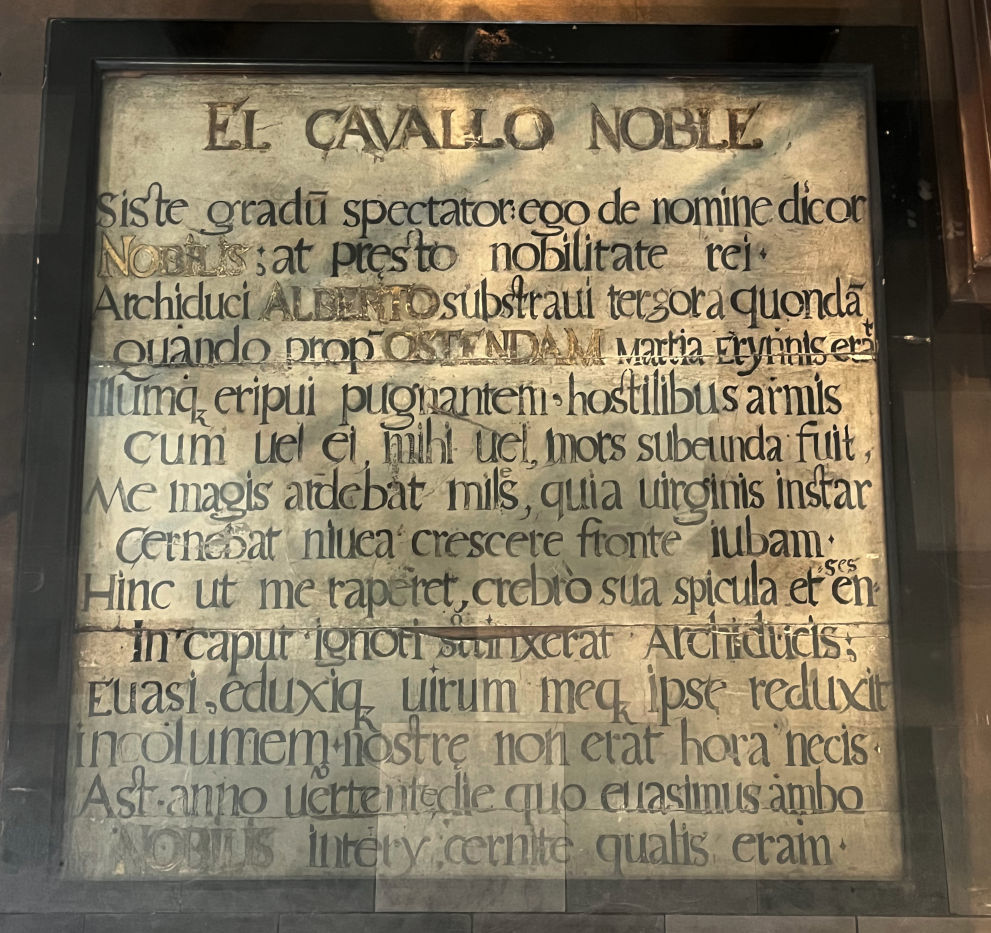 EL CAVALLO NOBLE
Siste gradū spectator: ego de nomine dicor
NOBILIS; at pręsto nobilitate rei·
Archiduci ALBERTO substraui tergora quondā,
quando prop̄ OSTENDAM Martia Erynnis erāt
illumq; eripui pugnantem· hostilibus armis
cum uel ei, mihi uel, mors subeunda fuit,
Me magis ardebat miles, quia uirginis instar
Cernebat niuea crescere fronte iubam·
Hinc ut me raperet, crebro sua spicula et enses
In caput ignoti strinxerat Archiducis;
Euasi, eduxiq; uirum meq; ipse reduxit
incolumem· nostrę non erat hora necis·
Ast· anno uertente die quo euasimus ambo
NOBILIS intery; cernite qualis eram·